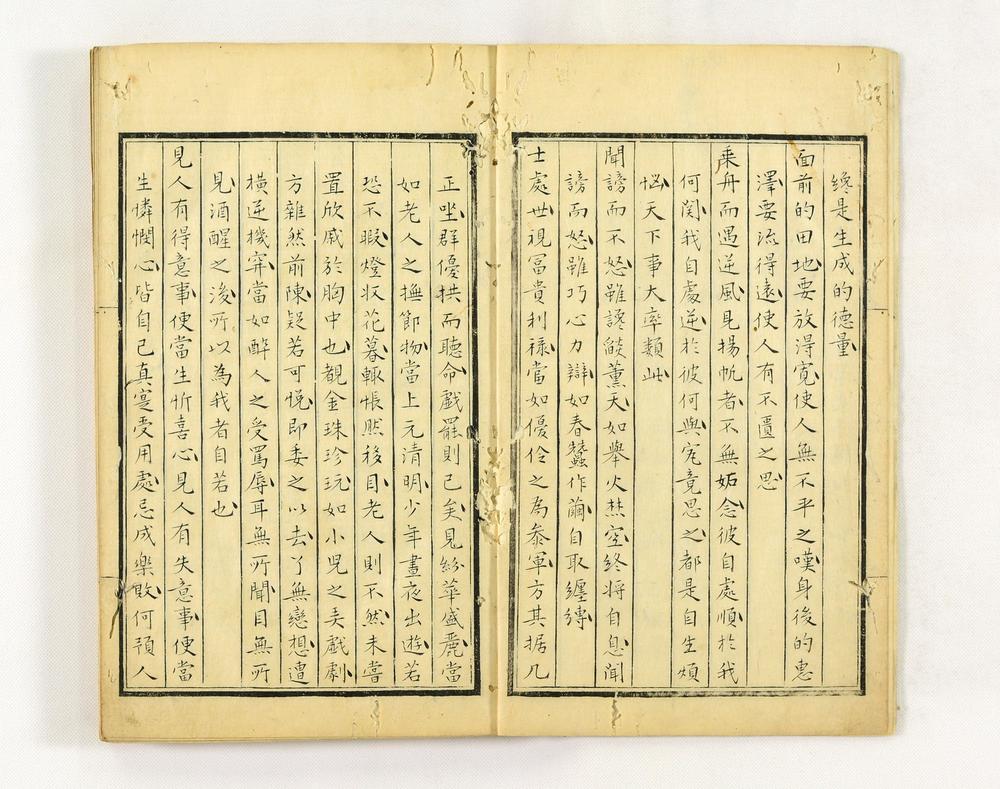 纔是生成的德量
面前的田地要放得寛使人無不平之嘆身後的惠
澤要流得遠使人有不匱之思
乗舟而遇逆風見揚帆者不無妬念彼自處順於我
何関我自處逆於彼何與究竟思之都是自生煩
惱天下事大率類此
聞謗而不怒雖讒燄薫天如舉火焚空終將自息聞
謗而怒雖巧心力辯如春蠶作繭自取纏縛
士處世視冨貴利祿當如優伶之為叅軍方其据几
正坐群優拱而聽命戯罷則已矣見紛華盛麗當
如老人之撫節物當上元清明少年晝夜出遊若
恐不暇燈収花暮輙悵然移目老人則不然未嘗
置欣戚於胸中也覩金珠珍玩如小児之弄戯劇
方雜然前陳疑若可悅即委之以去了無戀想遭
横逆機穽當如醉人之受罵辱耳無所聞目無所
見酒醒之後所以為我者自若也
見人有得意事便當生忻喜心見人有失意事便當
生憐憫心皆自已真寔受用處忌成樂敗何預人